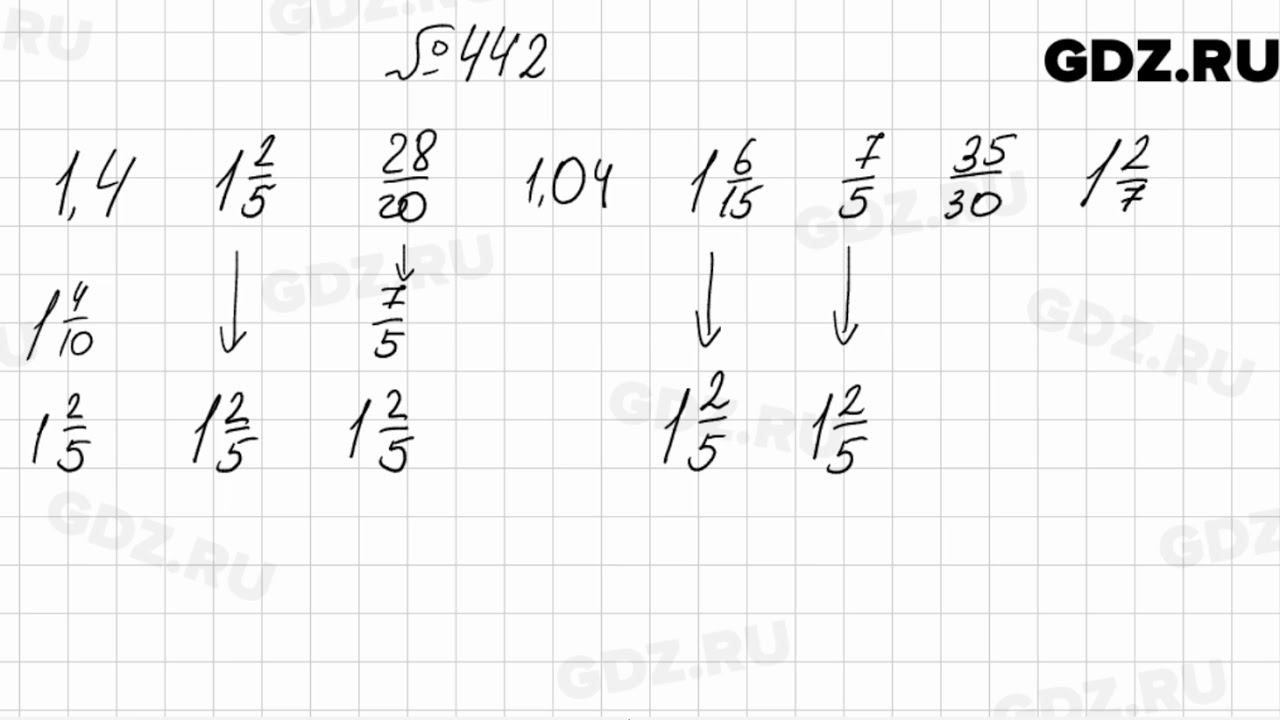 №442
GDZ.RU
1,4 1 2/5 28/20 1,04 1 6/15 7/5 35/30 1 2/7
1 4/10 ↓ ↓ 7/5 ↓ ↓
1 2/5 1 2/5 1 2/5 1 2/5 1 2/5